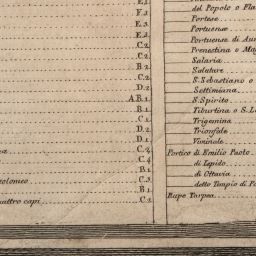 E.1.
F.3.
E.3.
E.3.
C.2.
C.2.
B.2.
C.2.
D.2.
A.B.1.
B.1.
C.1.
D.2.
D.1.
C.2.
C.4.
B.1.
C.3.
B.1.
uattro capi C.2.
del Popolo o Fla
Portese
Portuense
Portuense di Au
Prenestina o Mag
Salaria
Salutare
S. Sebastiano o
Settimiana
S. Spirito
Tiburtina o S. L
Trigemina
Trionfale
Viminale
Portico di Emilio Paolo
di Lepido
di Ottavia
detto Tempio di Pa
Rupe Tarpea